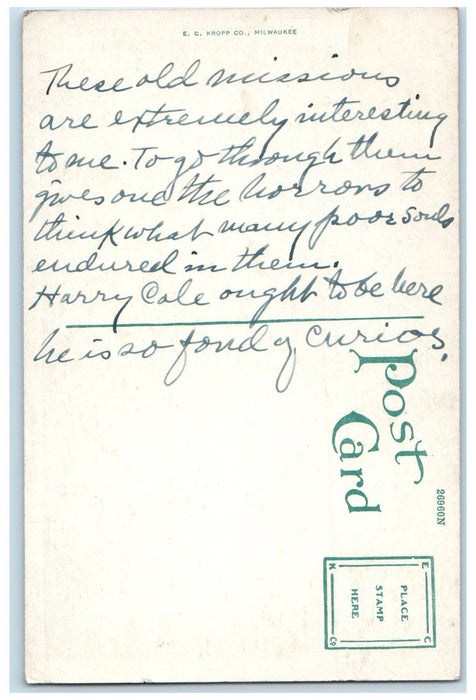 E. C. KROPP CO., MILWAUKEE
These old missions
are extremely interesting
to me. To go through them
gives one the horrors to
think what many poor souls
endured in them.
Harry Cole ought to be here
he is so fond of curios.
Post
Card
26960N
E
K
C
Co
PLACE
STAMP
HERE